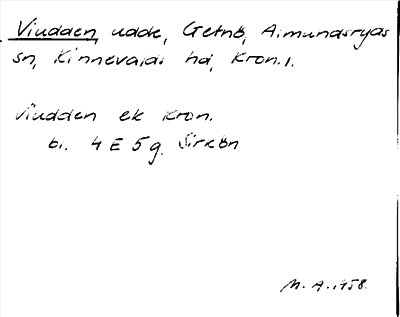 Viudden, udde, Getnö, Almundsryds
sn, Kinnevalds hd, Kron. l.
Viudden ek Kron.
bl. 4 E 5 g. Sirkön
M. A. 1958.